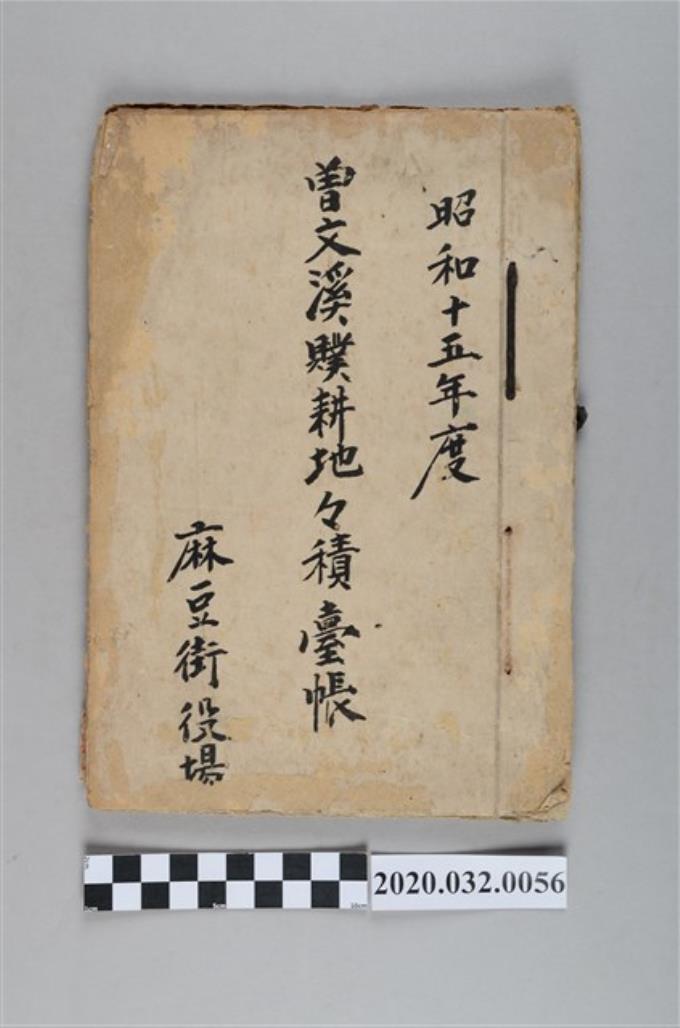 昭和十五年度
曽文溪贌耕地々積臺帳
麻豆街役場
5cm
10cm
2020.032.0056